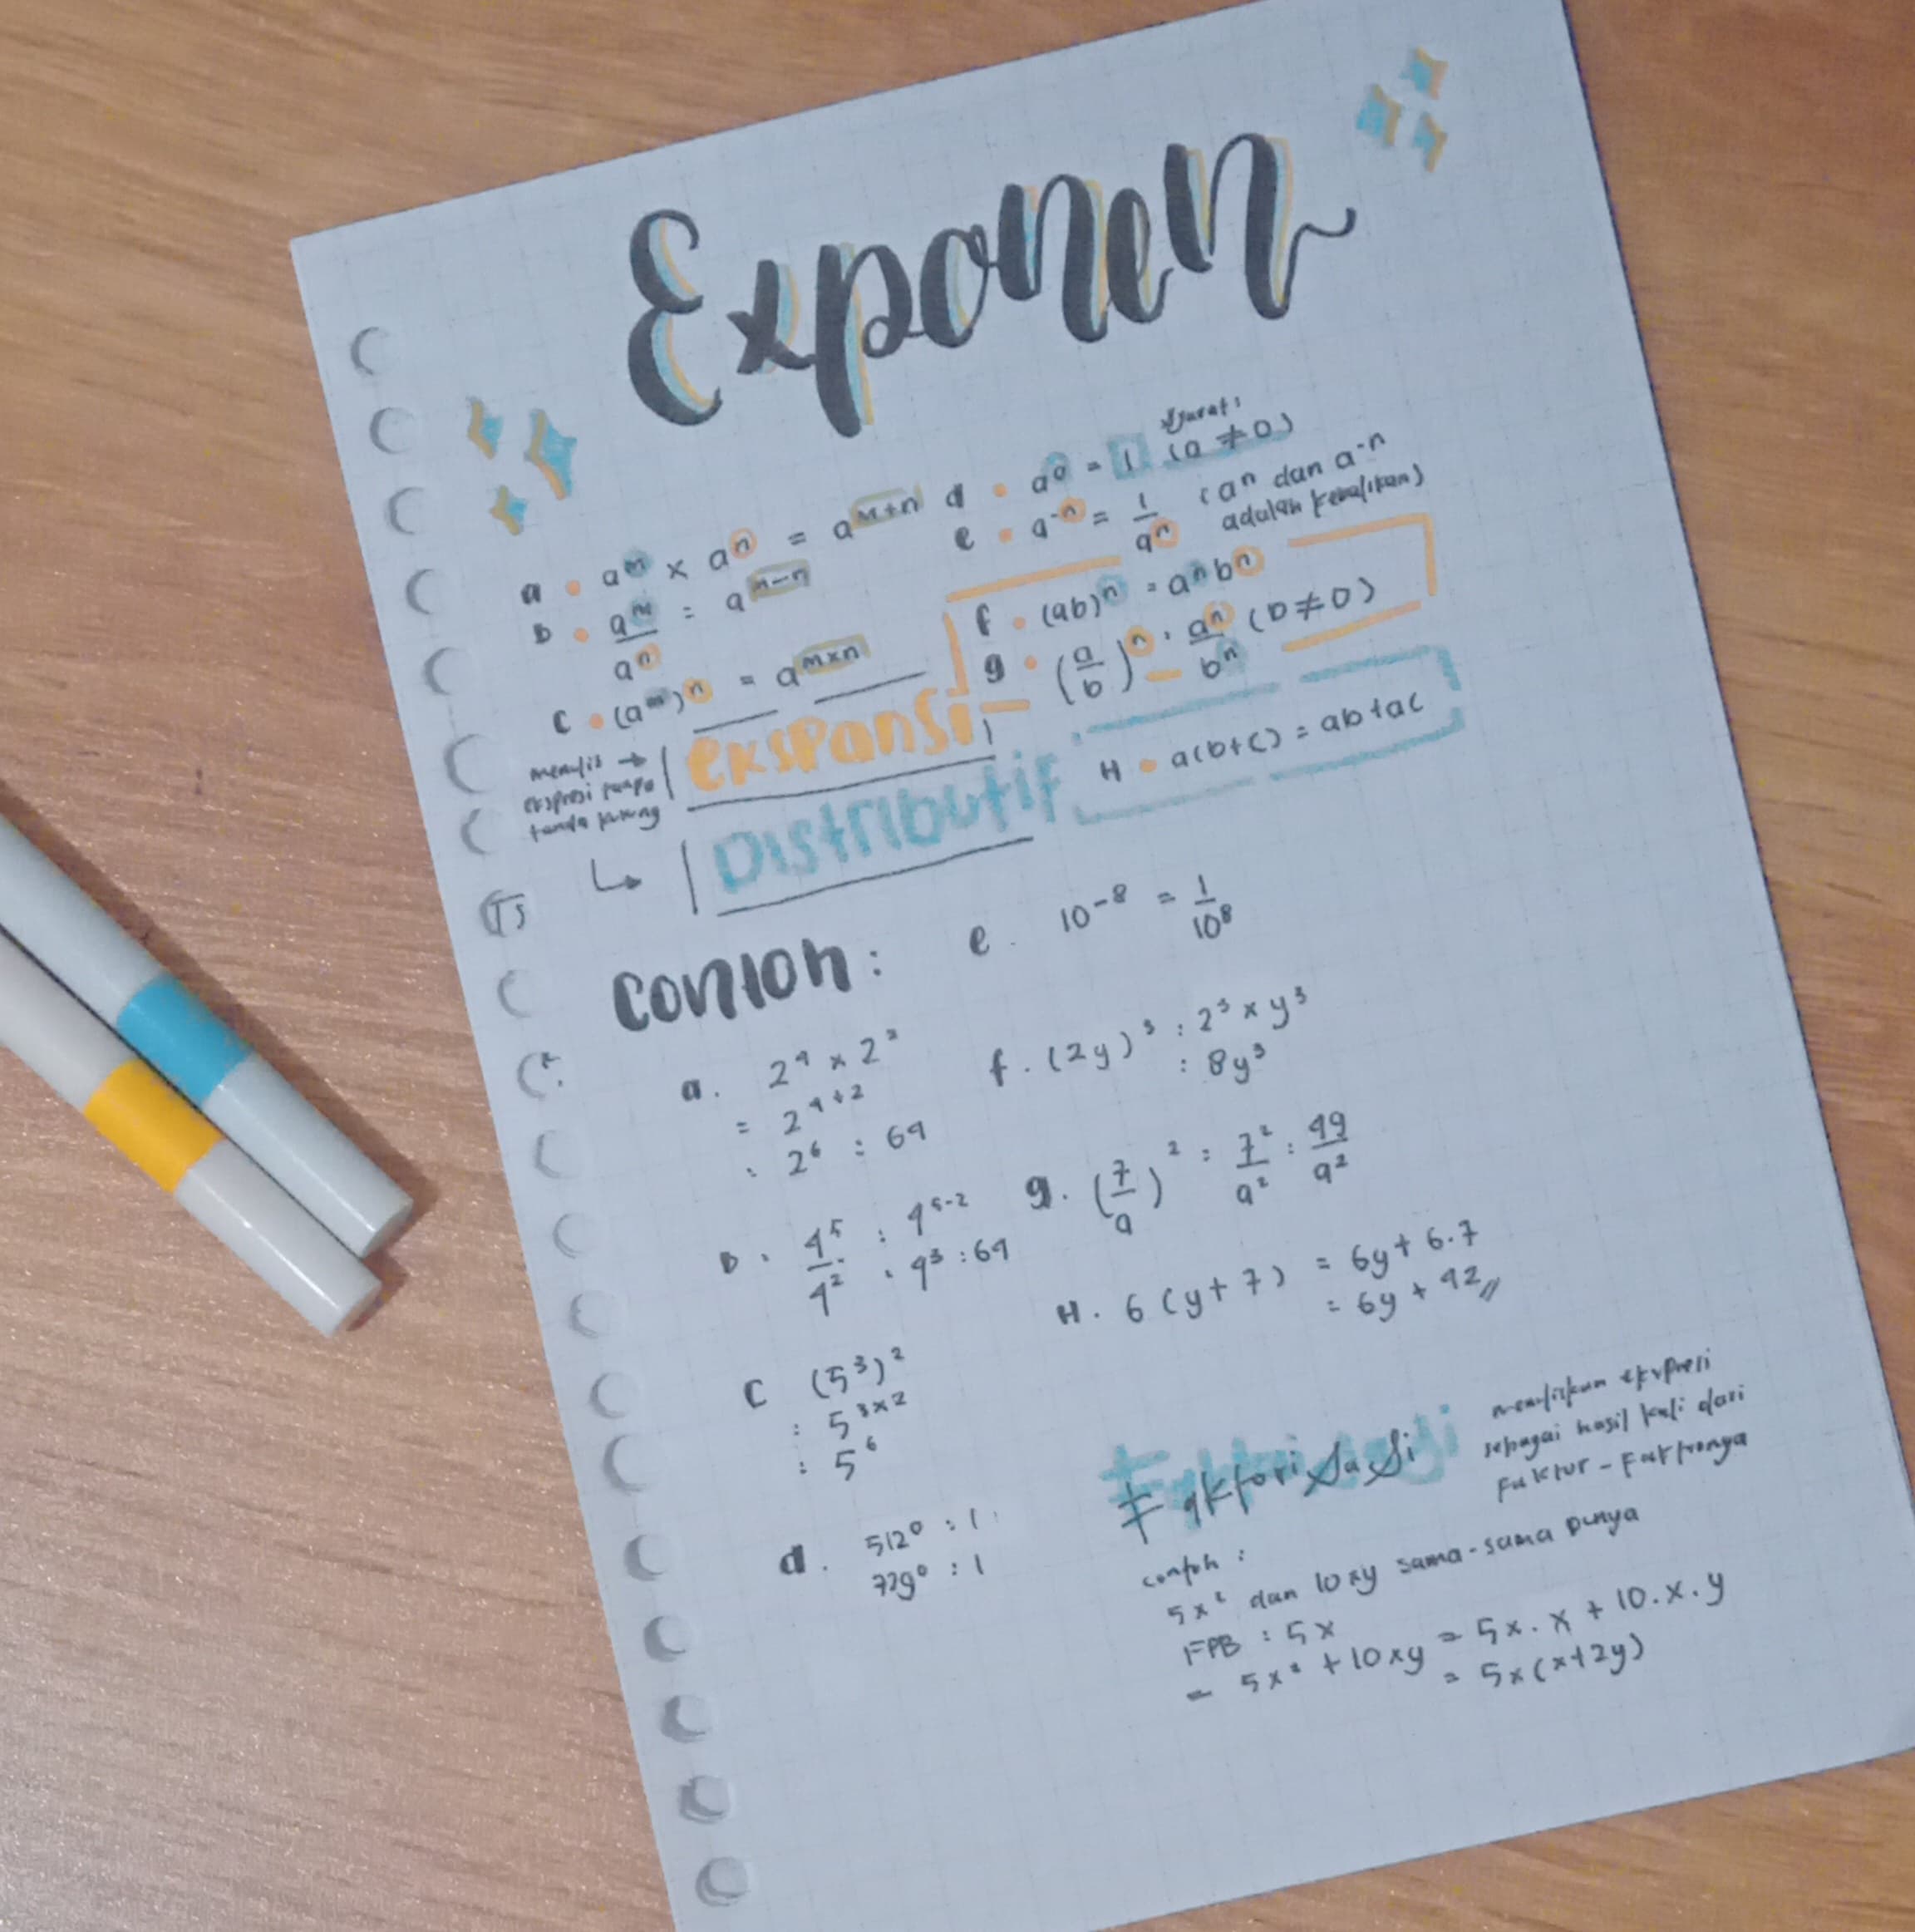 Exponen
a • aᵐ × aⁿ = aᵐ⁺ⁿ
b • aᵐ/aⁿ = aᵐ⁻ⁿ
c • (aᵐ)ⁿ = aᵐˣⁿ
d • a⁰ = 1 (a ≠ 0)
syarat:
e • a⁻ⁿ = 1/aⁿ (aⁿ dan a⁻ⁿ
adalah kebalikan)
f • (ab)ⁿ = aⁿbⁿ
g • (a/b)ⁿ = aⁿ/bⁿ (b ≠ 0)
menulis →
ekspresi tanpa
tanda kurung
ekspansi
Distributif
H • a(b+c) = ab+ac
contoh:
a. 2⁴ × 2²
= 2⁴⁺²
= 2⁶ = 64
b. 4⁵/4² = 4⁵⁻²
= 4³ = 64
c (5³)²
= 5³ˣ²
= 5⁶
d. 512⁰ = 1
779⁰ = 1
e. 10⁻⁸ = 1/10⁸
f. (2y)³ = 2³ × y³
= 8y³
g. (7/a)² = 7²/a² = 49/a²
H. 6(y+7) = 6y + 6.7
= 6y + 42//
Faktorisasi
menuliskan ekspresi
sebagai hasil kali dari
faktor-faktornya
contoh:
5x² dan 10xy sama-sama punya
FPB : 5x
= 5x² + 10xy = 5x.x + 10.x.y
= 5x(x+2y)